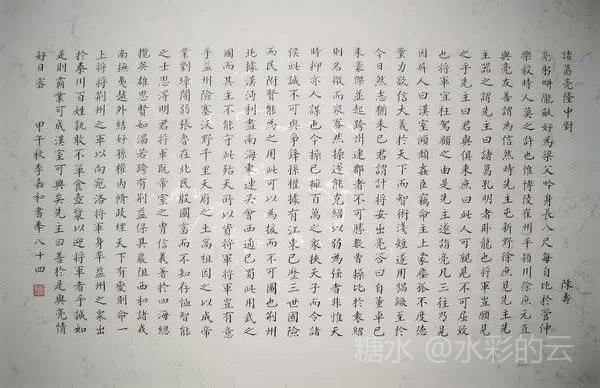 諸葛亮隆中對 陳壽
亮躬耕隴畝好為梁父吟身長八尺每自比於管仲
樂毅時人莫之許也惟博陵崔州平潁川徐庶元直
與亮友善謂為信然時先主屯新野徐庶見先主先
主器之謂先主曰諸葛孔明者臥龍也將軍豈願見
之乎先主曰君與俱來庶曰此人可就見不可屈致
也將軍宜枉駕顧之由是先主遂詣亮凡三往乃見
因屏人曰漢室傾頹姦臣竊命主上蒙塵孤不度德
量力欲信大義於天下而智術淺短遂用猖蹶至於
今日然志猶未已君謂計將安出亮答曰自董卓已
來豪傑並起跨州連郡者不可勝數曹操比於袁紹
則名微而眾寡然操遂能克紹以弱為強者非惟天
時抑亦人謀也今操已擁百萬之眾挾天子而令諸
侯此誠不可與爭鋒孫權據有江東已歷三世國險
而民附賢能為之用此可以為援而不可圖也荊州
北據漢沔利盡南海東連吳會西通巴蜀此用武之
國而其主不能守此殆天所以資將軍將軍豈有意
乎益州險塞沃野千里天府之土高祖因之以成帝
業劉璋闇弱張魯在北民殷國富而不知存恤智能
之士思得明君將軍既帝室之胄信義著於四海總
攬英雄思賢如渴若跨有荊益保其巖阻西和諸戎
南撫夷越外結好孫權內修政理天下有變則命一
上將將荊州之軍以向宛洛將軍身率益州之眾出
於秦川百姓孰敢不簞食壺漿以迎將軍者乎誠如
是則霸業可成漢室可興矣先主曰善於是與亮情
好日密 甲午秋李嘉和書年八十四
糖水 @水彩的云